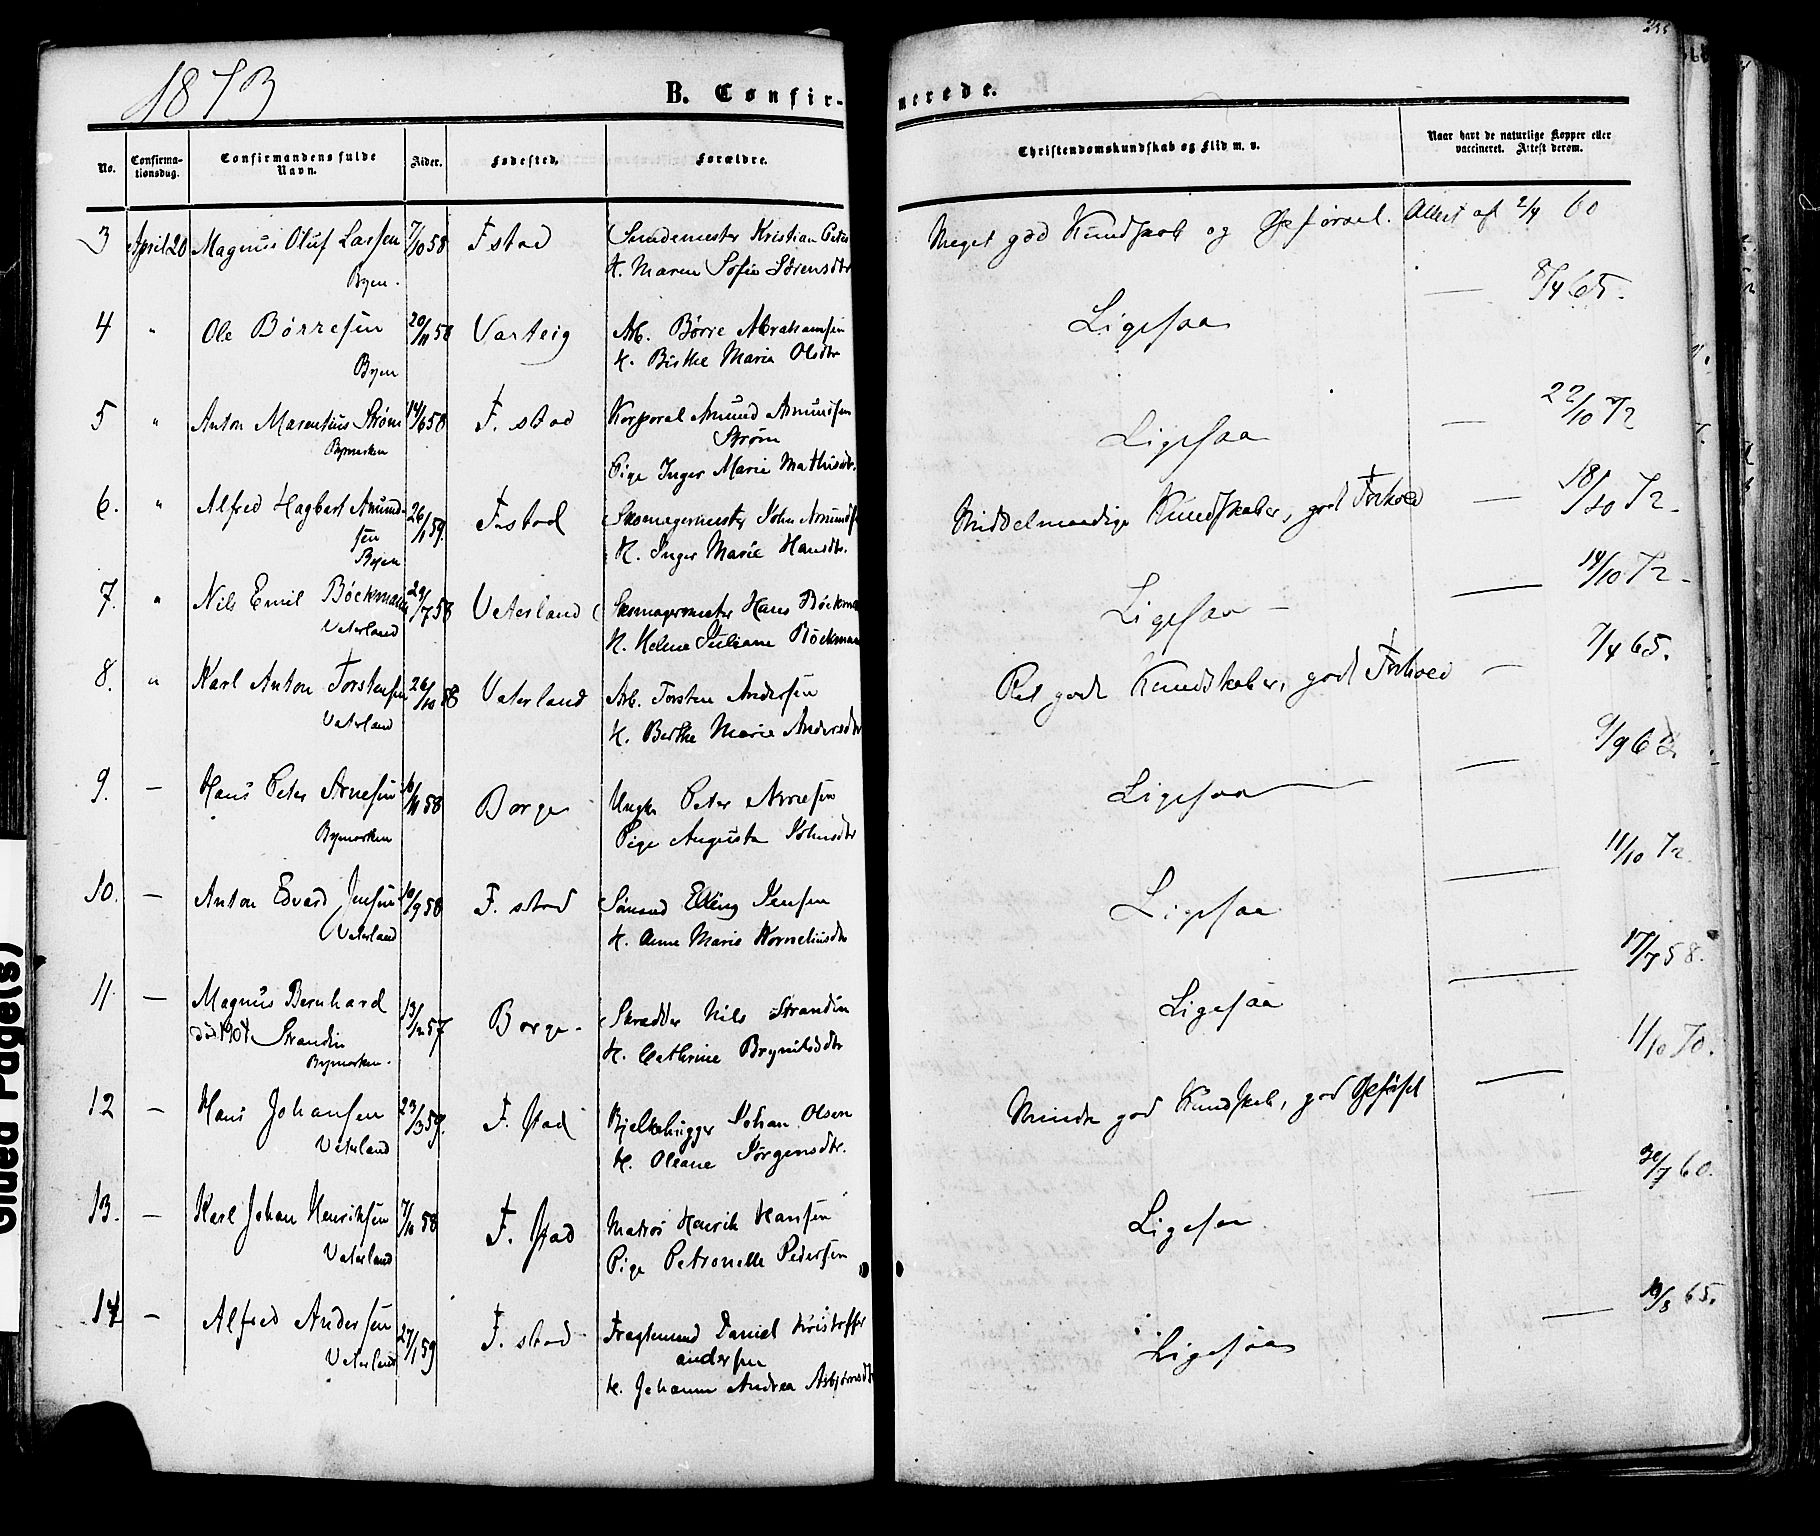 1873
B. Confir-
No.
Confirma-
tionsdag.
Confirmandens fulde
Navn.
Alder.
Fødested.
Forældre.
3 April 20 Magnus Oluf Larsen 7/10 58 F stad Kristian
Byen. H. Maren Sofie Sørensdtr
4 " Ole Børresen 20/11 58 Varteig Arb. Børre Abrahamsen
Byen H. Marie Olsdtr
5 " Anton Marentius Strøm 14/6 58 F. stad Korporal Amund Amundsen
Bymarken Strøm
Pige Inger Marie
6. " Alfred Hagbart Amund- 26/1 59. F. stad Skomagermester John
sen
Byen H. Inger Marie Hansdtr.
7. " Nils Emil Böckmann /7 58 Vaterland Skomagermester Hans
Vaterland H. Helene Juliane
8. " Karl Anton Torstensen 26/10 58 Vaterland Arb. Torsten Andersen
Vaterland H. Berthe Marie Andersdtr
9. — Hans Peter Arnesen /11 58 Borge Ungk. Peter Arnesen
Bymarken Pige Augusta Johnsdtr
10. — Anton Edvard Jensen 10/9 58 F. stad Sømand Elling Jensen
Vaterland H. Anne Marie Korneliusdtr
11. — Magnus Bernhard 13/12 57 Borge. Skrædder Nils Strandin
Strandin
Bymarken. H. Cathrine
12 — Hans Johansen 23/3 59. F. stad Bjelkehugger Johan Olsen
Vaterland H. Oleane Jørgensdtr.
13. — Karl Johan Henriksen 7/11 58 F. stad Matros Henrik Hansen
Vaterland Pige Petronelle Pedersen
14 — Alfred Andersen 27/1 59 F. stad Daniel
Vaterland andersen
H. Johanne Andrea
255
merede.
Christendomskundskab og Flid m. v.
Naar havt de naturlige Kopper eller
vaccineret. Attest derom.
Meget god Kundskab og Opførsel. Attest af 2/9 60
Ligesaa — 8/4 65.
Ligesaa — 22/10 72
Middelmaadige Kundskaber, god Forhold — 18/10 72
Ligesaa — 14/10 72
Ret gode Kundskaber, god Forhold — 7/4 65.
Ligesaa —
Ligesaa — 11/10 72
Ligesaa — 17/7 58.
Mindre god Kundskab, god Opførsel — 11/10 70.
Ligesaa — 30/7 60.
Ligesaa — 65.
Glued Page(s)